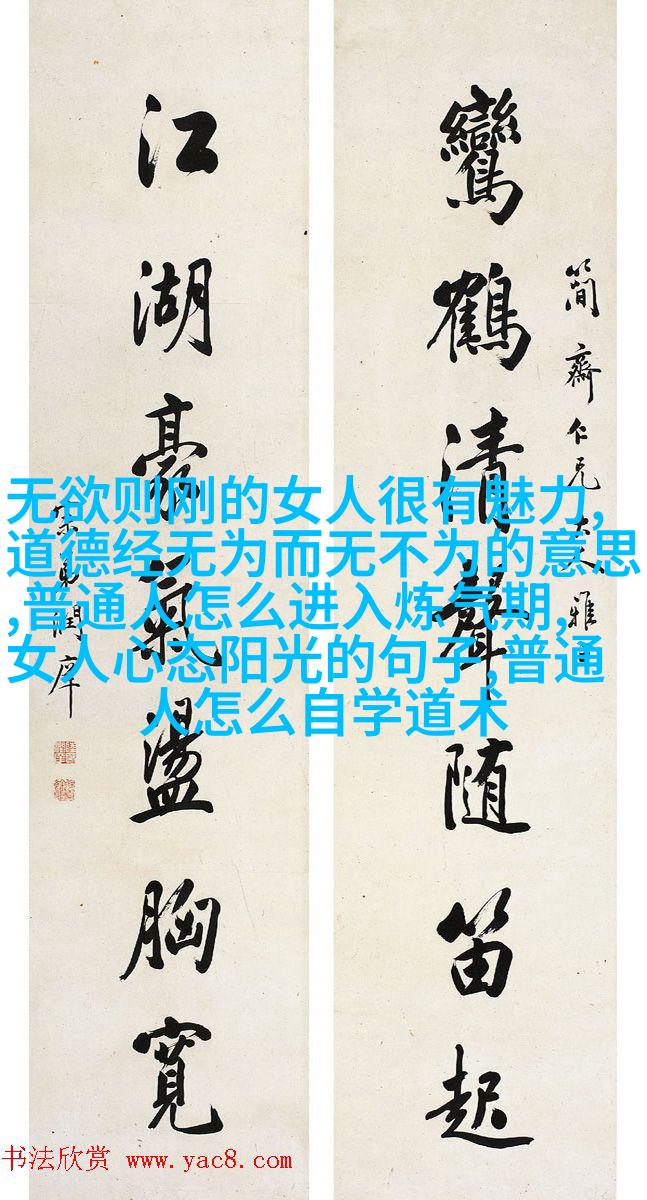 鸞鶴清聲随笛起
簡齋仁兄大人雅
江湖豪氣盪胸寬
无欲则刚的女人很有魅力,
道德经无为而无不为的意思
,普通人怎么进入炼气期,
女人心态阳光的句子,普通
人怎么自学道术
书法欣赏 www.yac8.com